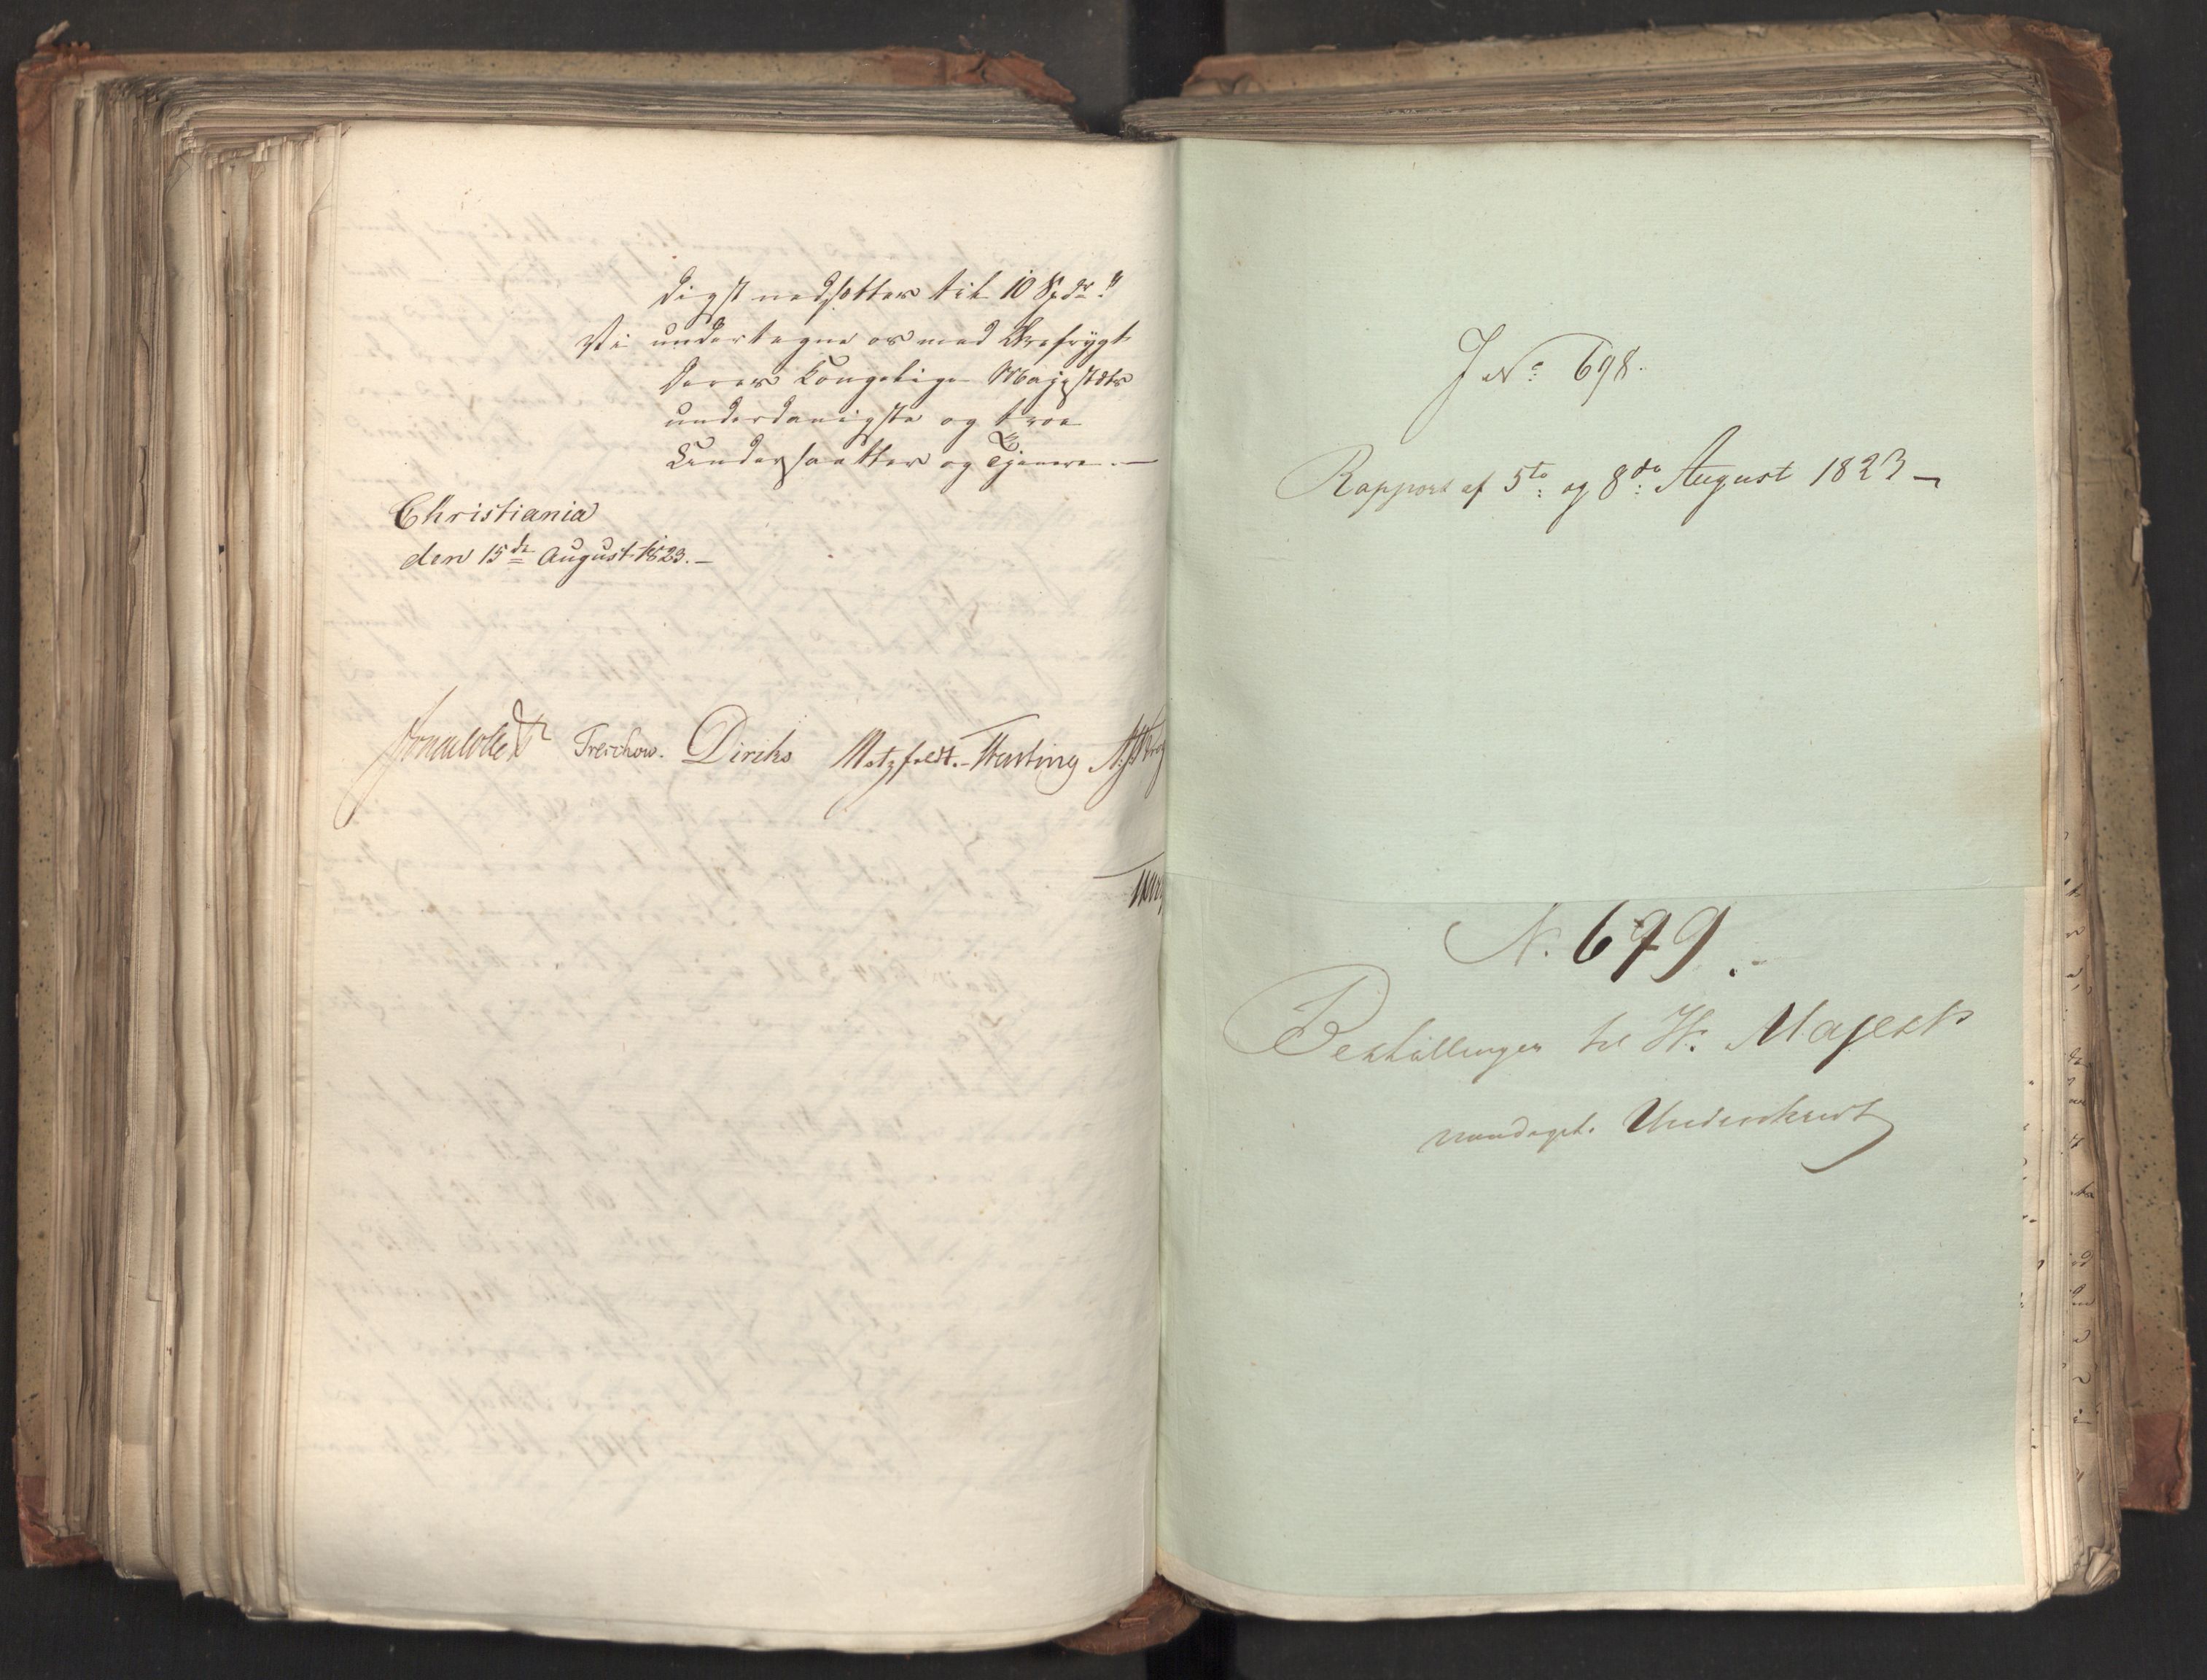 digst nedsættes til 10 Spdr."
Vi undertegne os med Ærefrygt
Deres Kongelige Majestæts
underdanigste og troe
Undersaatter og Tjenere. —
Christiania
den 15de August 1823. —
Treschow. Diriks Motzfeldt.
J No 698.
Rapport af 5te og 8de August 1823 —
N. 699.
Bestallinger til H. Majests
naadigst. Underskrivt